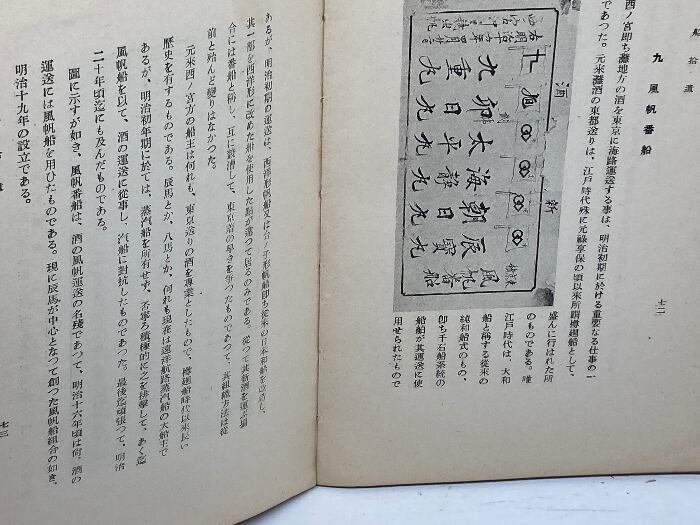 船拾遺
九 風帆番船
七二
西ノ宮卽ち灘地方の酒を東京に海路運送する事は、明治初期に於ける重要なる仕事の一
であつた。元來灘酒の東都送りは、江戶時代殊に元祿享保の頃以來所謂樽廻船として、
盛んに行はれた所
のものである。唯
江戶時代は、大和
船と稱する從來の
純和船式のもの、
卽ち千石船系統の
船舶が其運送に使
用せられたもので
酒
新
風帆番船
辰 九
朝日 九
海 九
太平 九
卯日 九
九重 丸
あるが、明治初期の運送は、西洋形帆船又は合ノ子形帆船卽ち從來の日本形船を改造し、
其一部を西洋形に改めた船を使用した點が違つて居るのみである。從つて其新酒を運ぶ場
合には番船と稱し、互に競漕して、東京着の早きを爭つたものであつて、其組織方法は從
前と殆んど變りはなかつた。
元來西ノ宮方の船主は何れも、東京送りの酒を專業としたもので、樽廻船時代以來長い
歷史を有するものである。辰馬とか、八馬とか、何れも現在は遠洋航路蒸汽船の大船主で
あるが、明治初年期に於ては、蒸汽船を所有せず、否寧ろ積極的に之を排擊して、あく迄
風帆船を以て、酒の運送に從事し、汽船に對抗したものであつた。最後迄頑張つて、明治
二十年頃迄にも及んだものである。
圖に示すが如き、風帆番船は、酒の風帆運送の名殘であつて、明治十六年頃は尙、酒の
運送には風帆船を用ひたものである。現に辰馬が中心となつて創つた風帆船組合の如き、
明治十九年の設立である。
七三